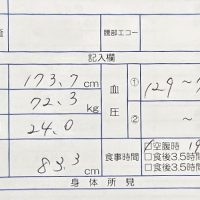 腹部エコー
記入欄
173.7 cm 血圧 ① 129 ~
72.3 kg
24.0 ② ~
83.3 cm 食事時間 ☑空腹時 19
□食後3.5時間
□食後3.5時間
身体所見